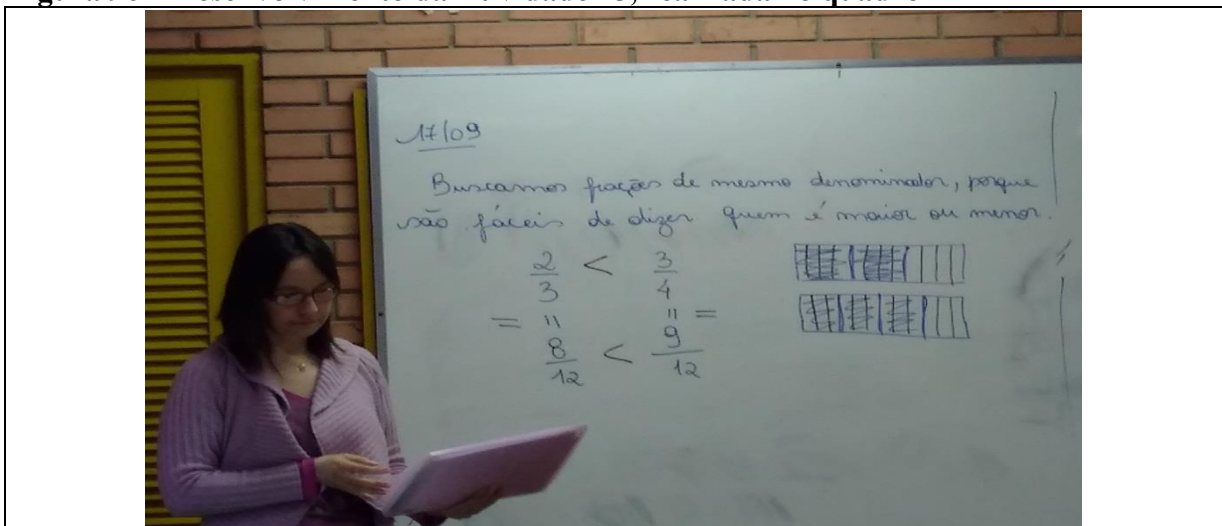 17/09
Buscamos frações de mesmo denominador, porque
são fáceis de dizer quem é maior ou menor.
2/3 < 3/4
= = = =
8/12 < 9/12